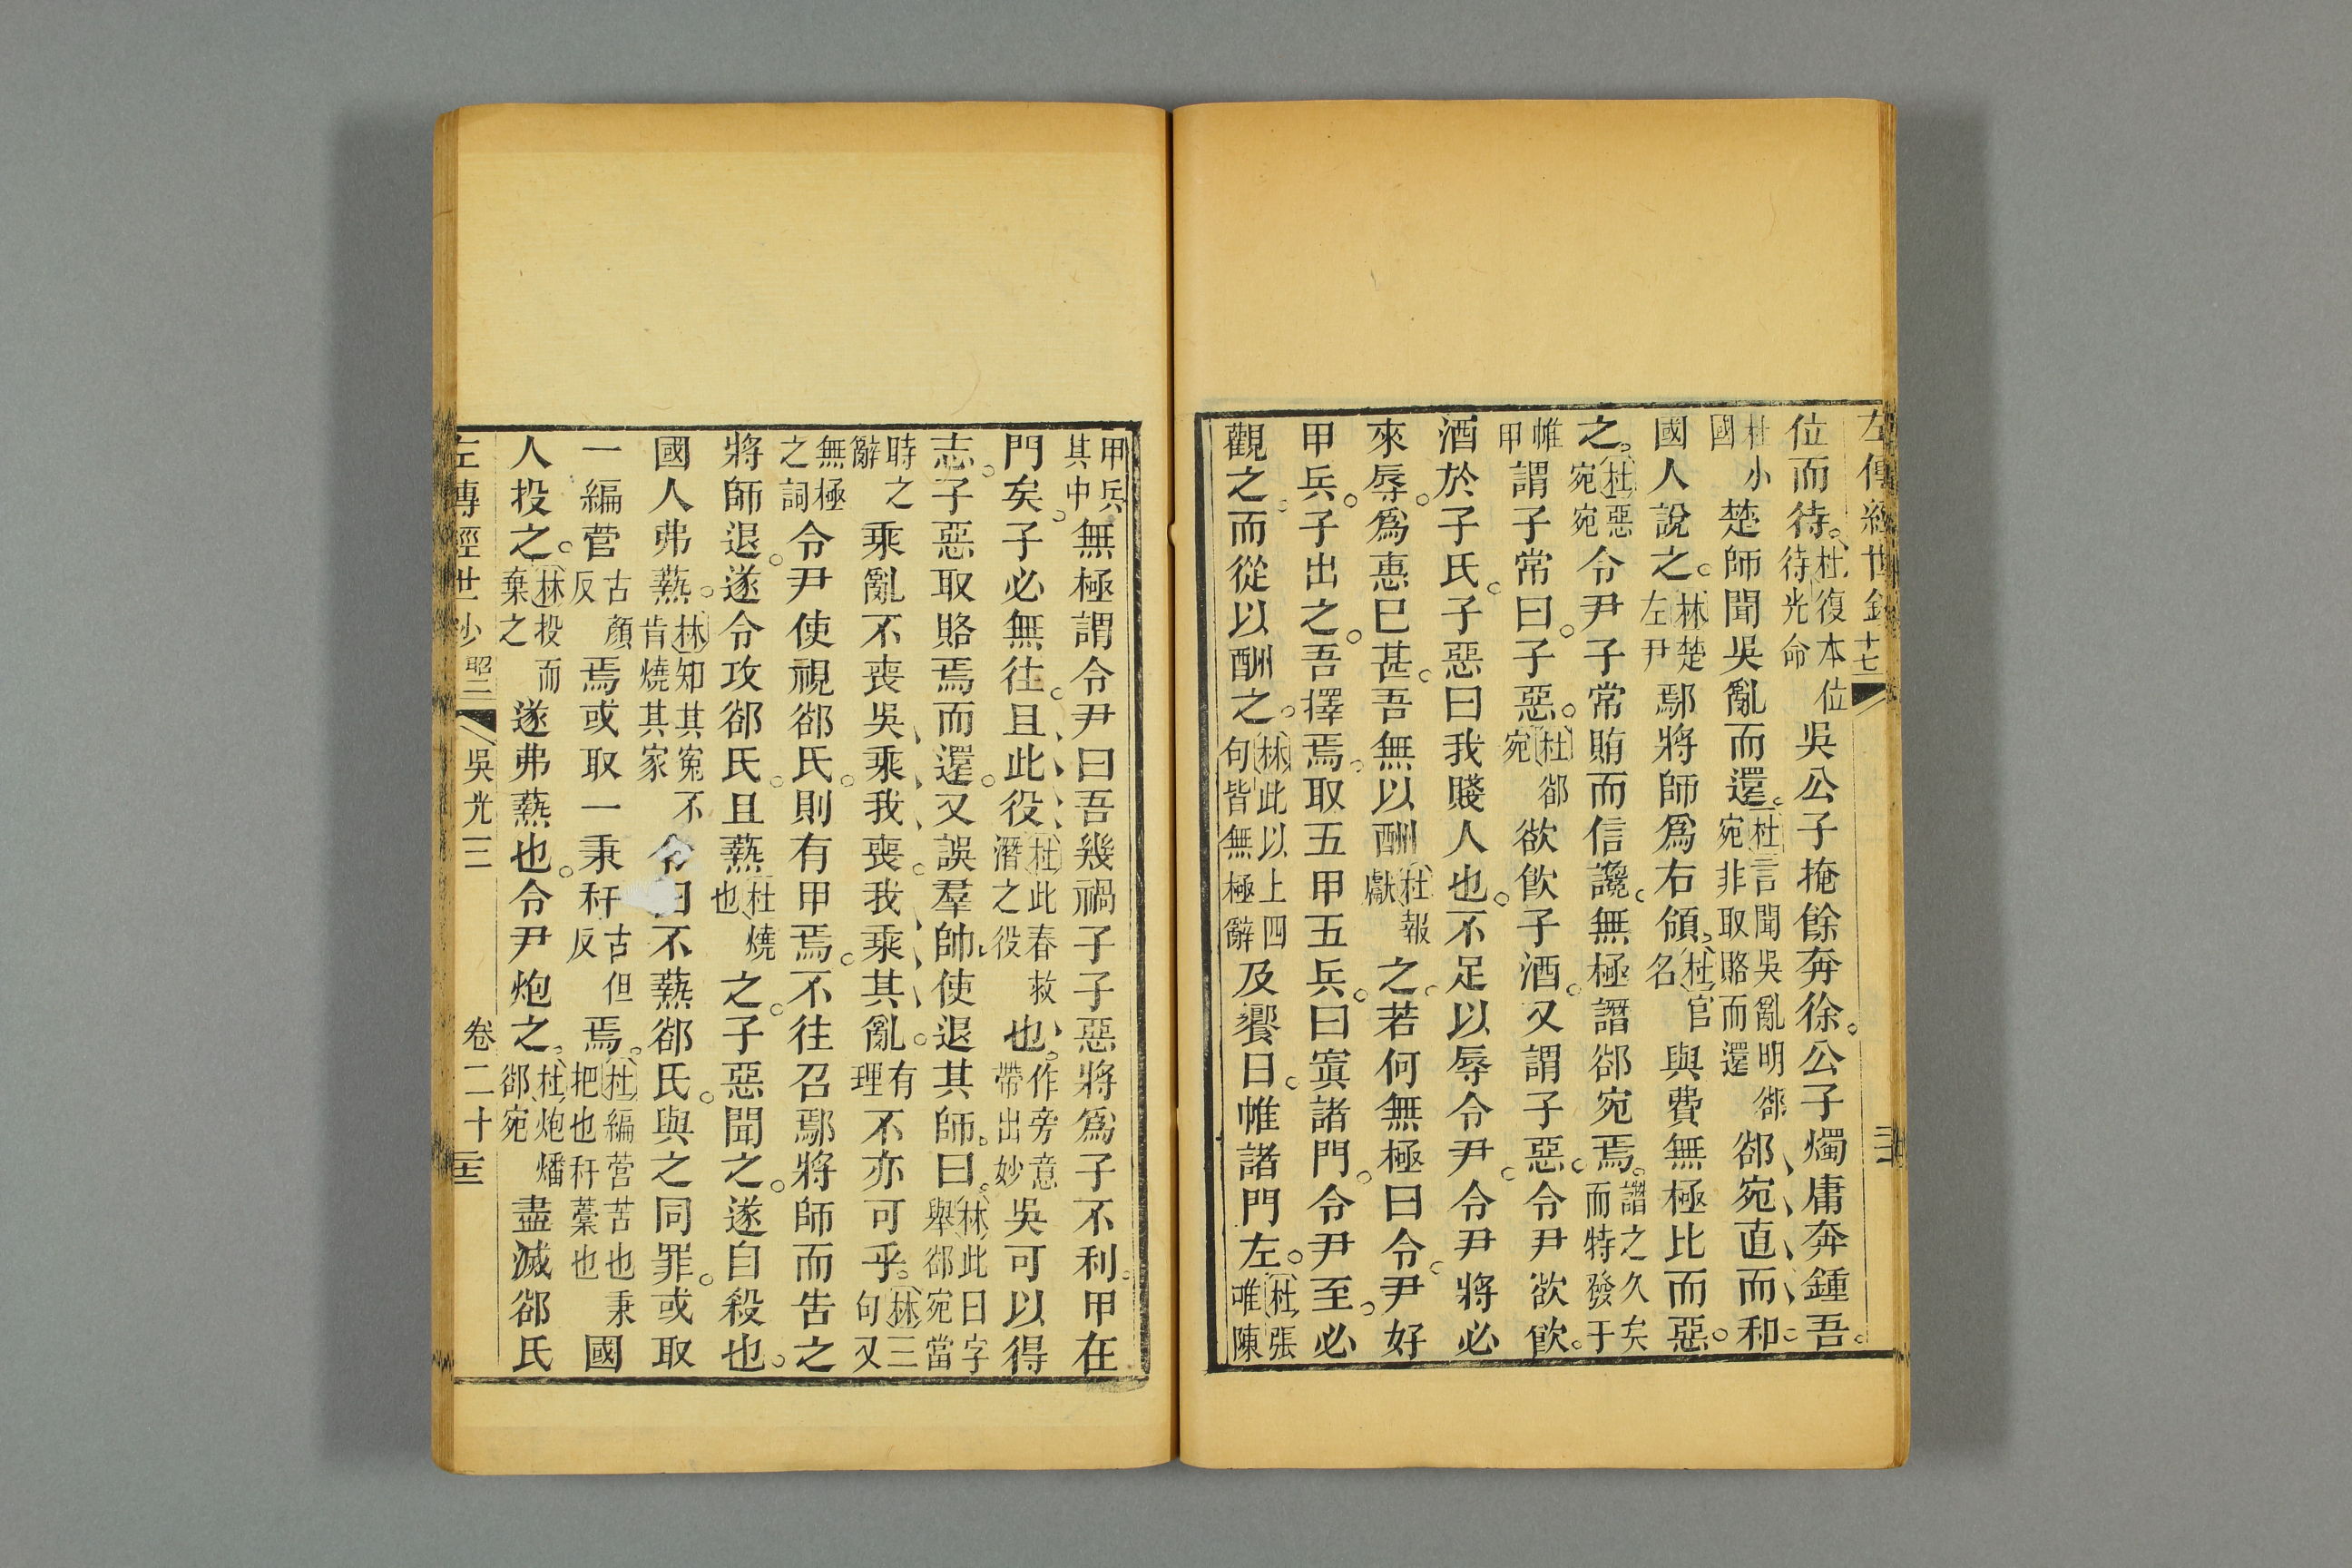 左傳經世鈔 十七
位而待。杜復本位待光命吳公子掩餘奔徐。公子燭庸奔鍾吾。
杜小國楚師聞吳亂而還。杜言聞吳亂明郤宛非取賂而還郤宛直而和。
國人說之。林楚左尹鄢將師爲右領。杜官名與費無極比而惡。
之。杜惡宛宛令尹子常賄而信讒。無極譖郤宛焉。譖之久矣而特發于
帷甲謂子常曰。子惡。杜郤宛欲飲子酒。又謂子惡。令尹欲飲。
酒於子氏。子惡曰我賤人也。不足以辱令尹。令尹將必
來辱。爲惠巳甚。吾無以酬杜報獻之。若何無極曰令尹好
甲兵。子出之。吾擇焉。取五甲五兵。曰寘諸門。令尹至。必
觀之。而從以酬之。林此以上四句皆無極辭及饗日。帷諸門左。杜張唯陳
甲兵其中無極謂令尹曰吾幾禍子子惡將爲子不利。甲在
門矣。子必無往。且此役杜此春救潛之役也。作旁意帶出妙吳可以得
志。子惡取賂焉而還。又誤羣帥。使退其師。曰。林此曰字舉郤宛當
時之辭乘亂不䘮吳乘我䘮。我乘其亂。有理不亦可乎。林三句又
無極之詞令尹使視郤氏。則有甲焉。不往召鄢將師而告之
將師退。遂令攻郤氏。且爇杜燒也之。子惡聞之。遂自殺也。
國人弗爇。林知其寃不肯燒其家令曰不爇郤氏。與之同罪。或取
一編菅古顏反焉或取一秉秆古但反焉。杜編菅苫也秉把也秆藁也國
人投之。林投而棄之遂弗爇也。令尹炮之。杜炮燔郤宛盡滅郤氏
左傳經世鈔 昭二 吳光三 卷二十